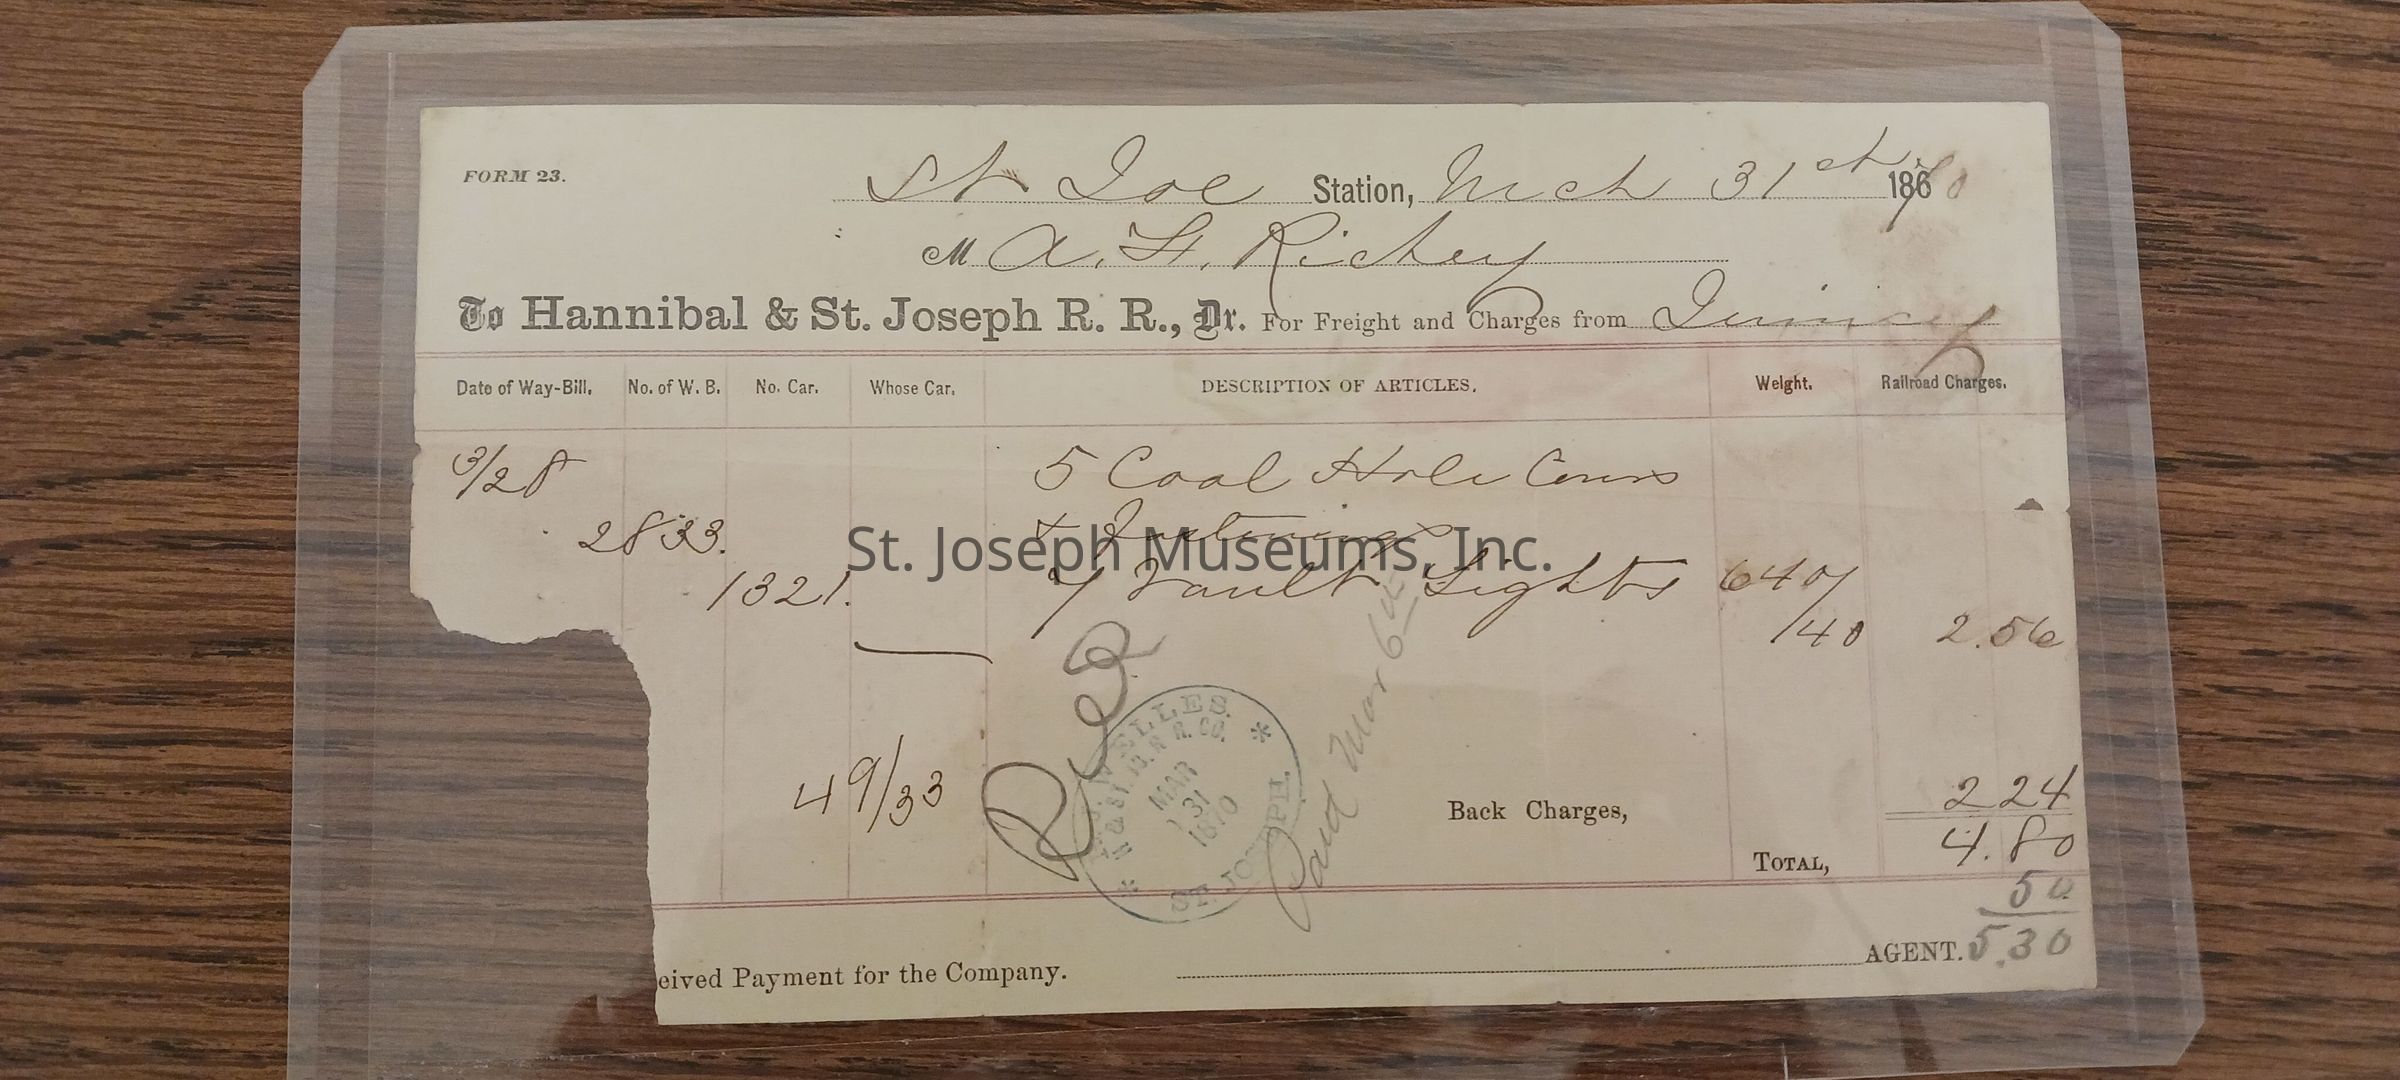 FORM 23.
St Joe Station, Mch 31st 1870
M A. H. Richey
To Hannibal & St. Joseph R. R., Dr. For Freight and Charges from Quincy
Date of Way-Bill. No. of W. B. No. Car. Whose Car. DESCRIPTION OF ARTICLES. Weight. Railroad Charges.
3/28 5 Coal Hole Covers
2833. & Fastenings
1321. 7 Vault Lights 640
/40 2.56
49/33
Rec
WELLES.
R. R. CO.
MAR
31
1870
ST. JOSEPH.
Paid Mar 6th
Back Charges, 2 24
TOTAL, 4.80
50
AGENT. 5.30
eived Payment for the Company.
St. Joseph Museums, Inc.